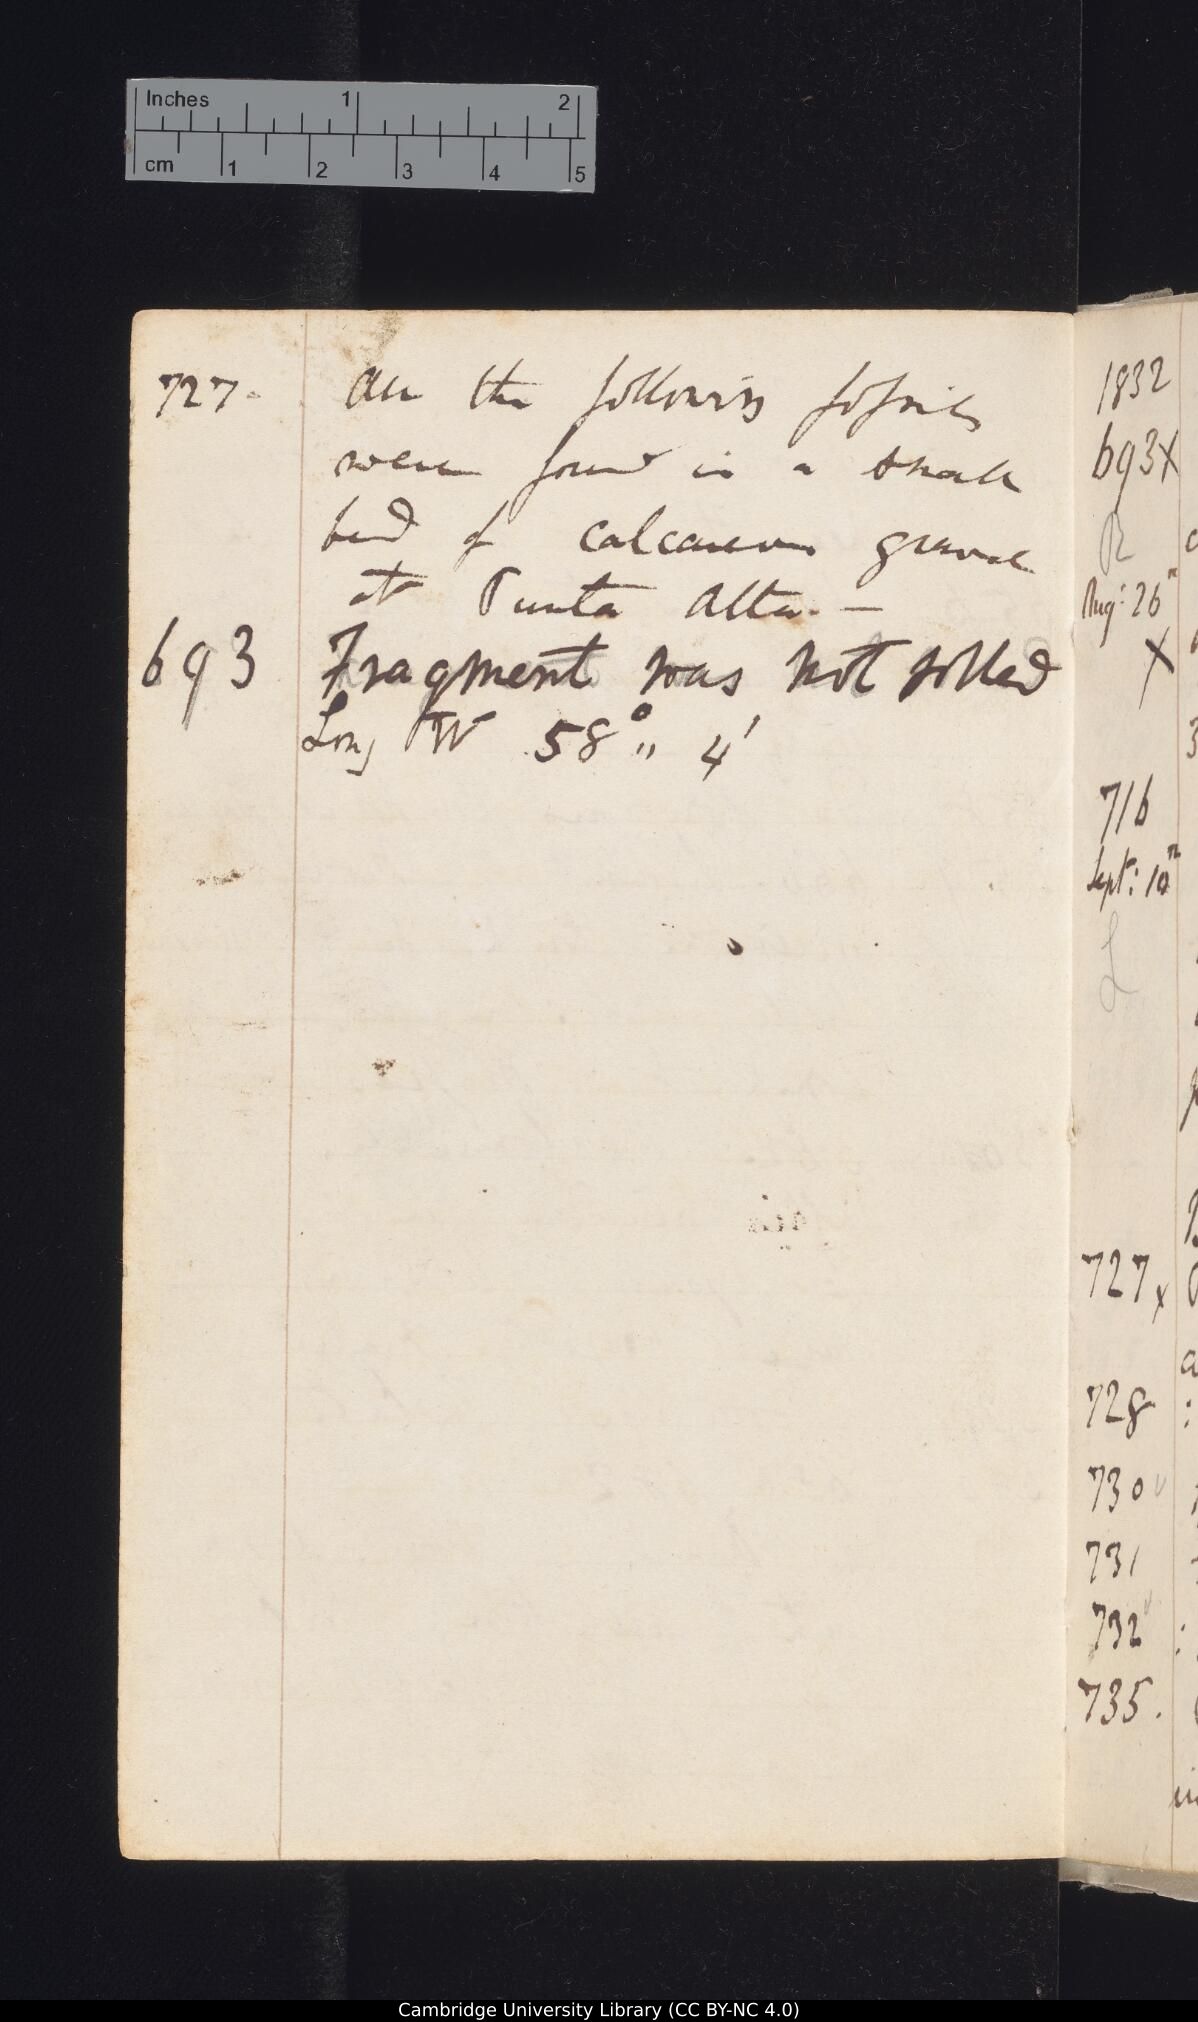 Inches 1 2
cm 1 2 3 4 5
727. All the following fossils
were found in a small
bed of calcareous gravel
at Punta Alta. —
693 Fragment was not rolled
Long W 58° „ 4'
1832
693X
R
Aug: 26th
X
716
Sept: 10th
L
727x
728
730
731
732
735.
Cambridge University Library (CC BY-NC 4.0)